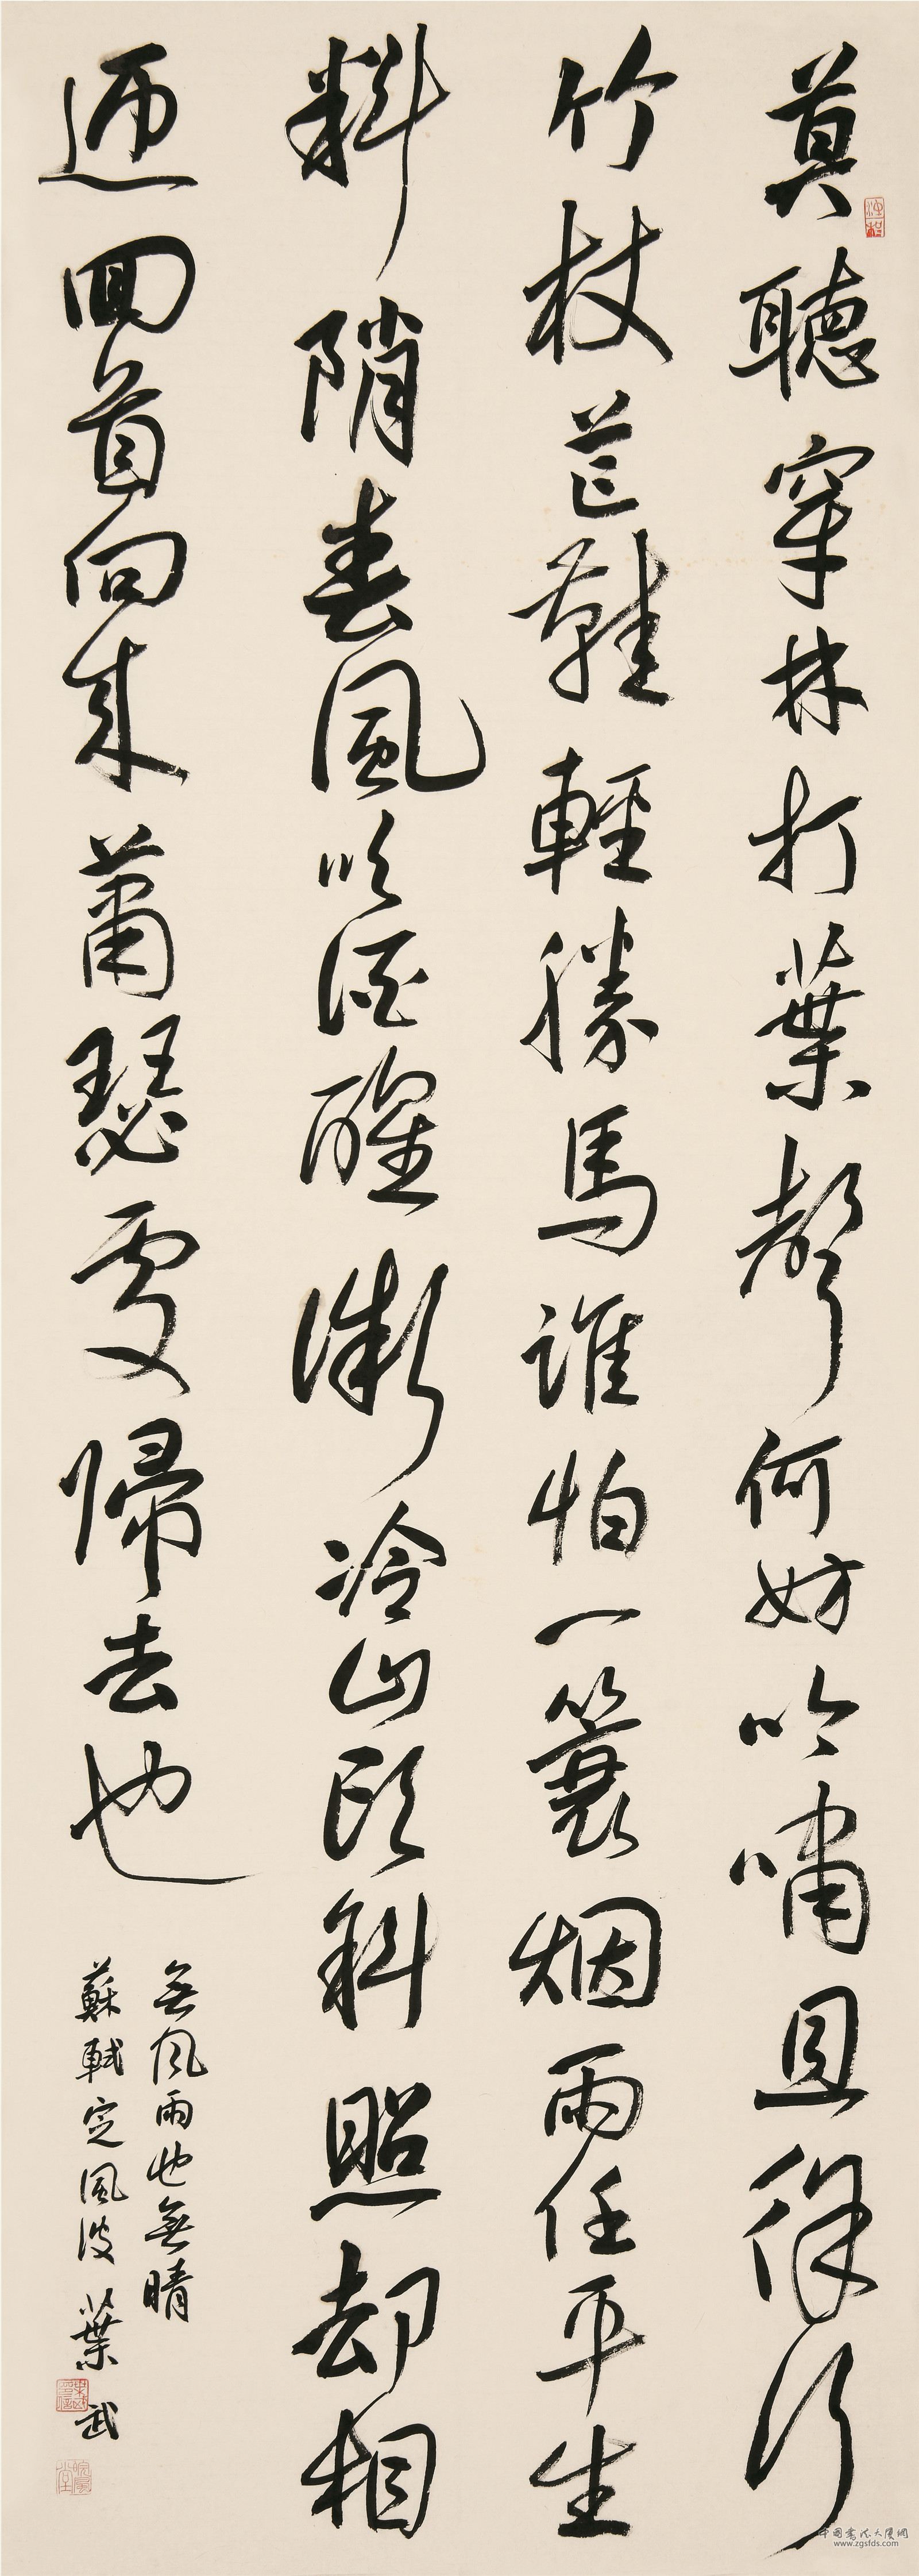 莫聽穿林打葉聲何妨吟嘯且徐行
竹杖芒鞋輕勝馬誰怕一蓑烟雨任平生
料陗春風吹酒醒微冷山頭斜照却相
迎回首向来蕭瑟處歸去也
無風雨也無晴
蘇軾定風波 葉武
中国書法大廈網
www.zgsfds.com